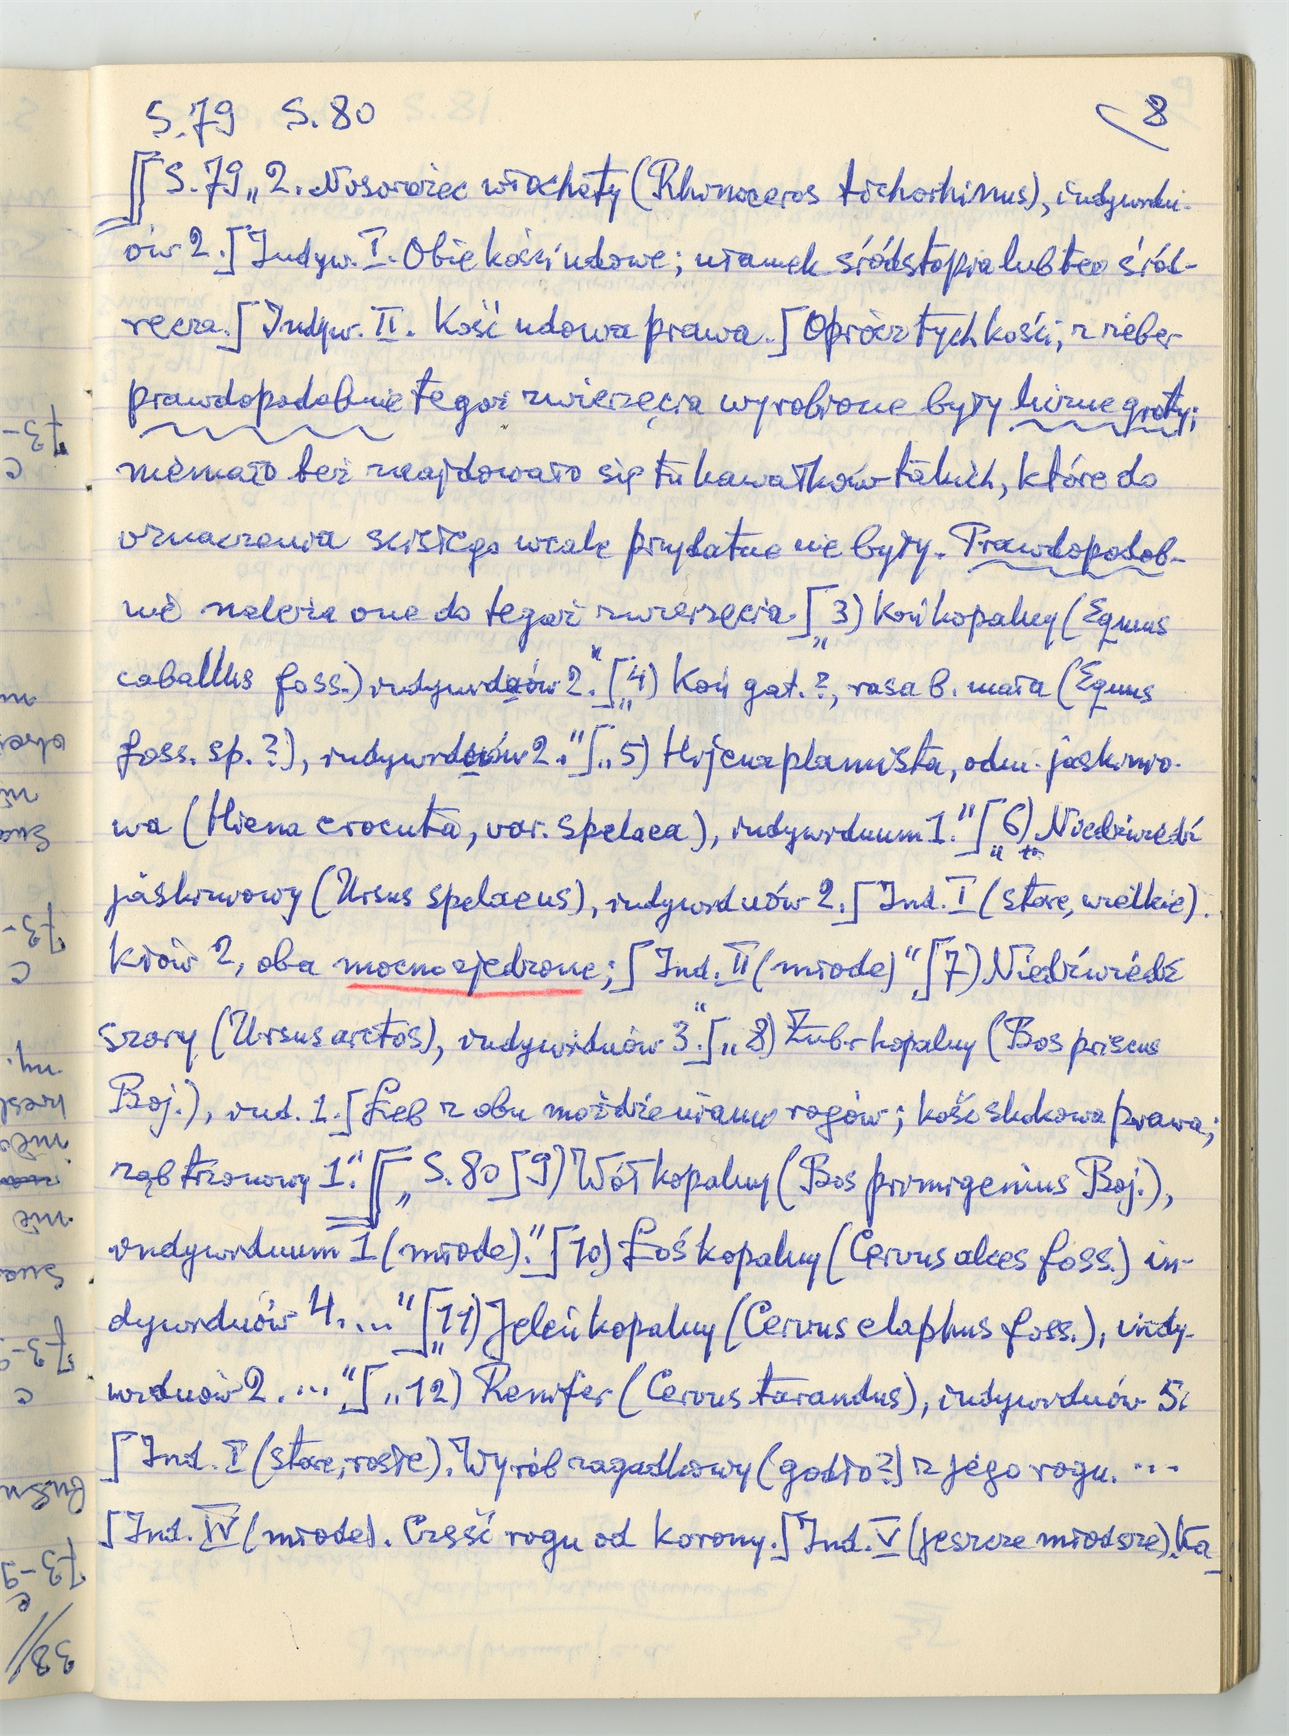 S.79 S.80 8
S.79 „2. Nosorożec włochaty (Rhinoceros tichorhinus), indywidu-
ów 2.[ Indyw. I. Obie kości udowe; ułamek śródstopia lub też śród-
ręcza.[ Indyw. II. Kość udowa prawa.[ Oprócz tych kości, z żeber
prawdopodobnie tegoż zwierzęcia wyrobione były liczne groty;
niemało też znajdowało się tu kawałków takich, które do
oznaczenia ścisłego wcale przydatne nie były. Prawdopodob-
nie należą one do tegoż zwierzęcia.[„3) Koń kopalny (Equus
caballus foss.) indywiduów 2."[„4) Koń gat.?, rasa b. mała (Equus
foss. sp.?), indywiduów 2."[„5) Hijena plamista, odm. jaskinio-
wa (Hiena crocuta, var. spelaea), individuum 1."[„6) Niedźwiedź
jaskiniowy (Ursus spelaeus), indywiduów 2.[ Ind. I (stare, wielkie).
Kłów 2, oba mocno zjedzone;[ Ind. II (młode)"[7) Niedźwiedź
szary (Ursus arctos), indywiduów 3."[„8) Żubr kopalny (Bos priscus
Boj.), ind. 1.[ Łeb z obu możdżeniami rogów; kość skokowa prawa;
ząb trzonowy 1."[„S.80[9) Wół kopalny (Bos primigenius Boj.),
indywiduum 1 (młode)."[10) Łoś kopalny (Cervus alces foss.) in-
dywiduów 4...."[„11) Jeleń kopalny (Cervus elaphus foss.), indy-
widuów 2...."[„12) Renifer (Cervus tarandus), indywiduów 5;
[Ind. I (stare, rosłe). Wyrób zagadkowy (godło?) z jego rogu. ...
[Ind. IV (młode). Część rogu od korony.[ Ind. V (jeszcze młodsze). Ka